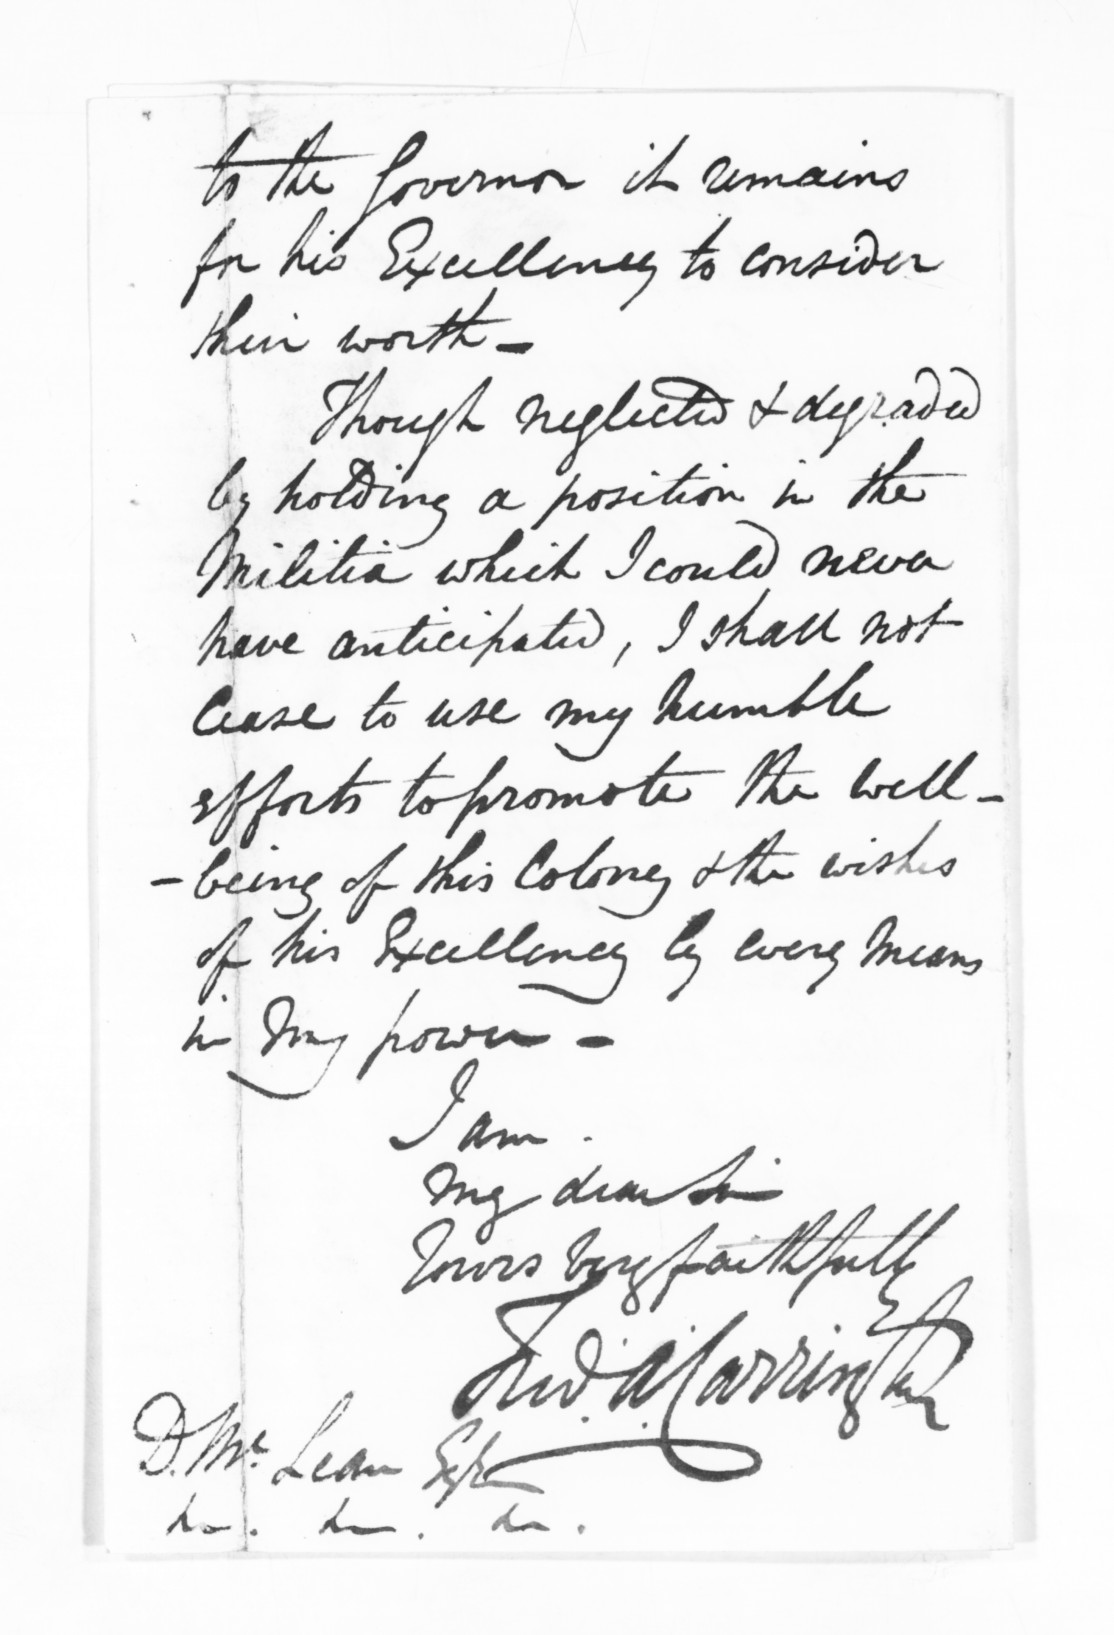 to the Governor it remains
for his Excellency to consider
their worth -
Though neglected & degraded
by holding a position in the
Militia which I could never
have anticipated, I shall not
cease to use my humble
efforts to promote the well -
- being of this Colony & the wishes
of his Excellency by every means
in my power -
I am
My dear Sir
Yours very faithfully
Fred. A. Carrington
D. Mc. Lean Esqre
&c. &c. &c.